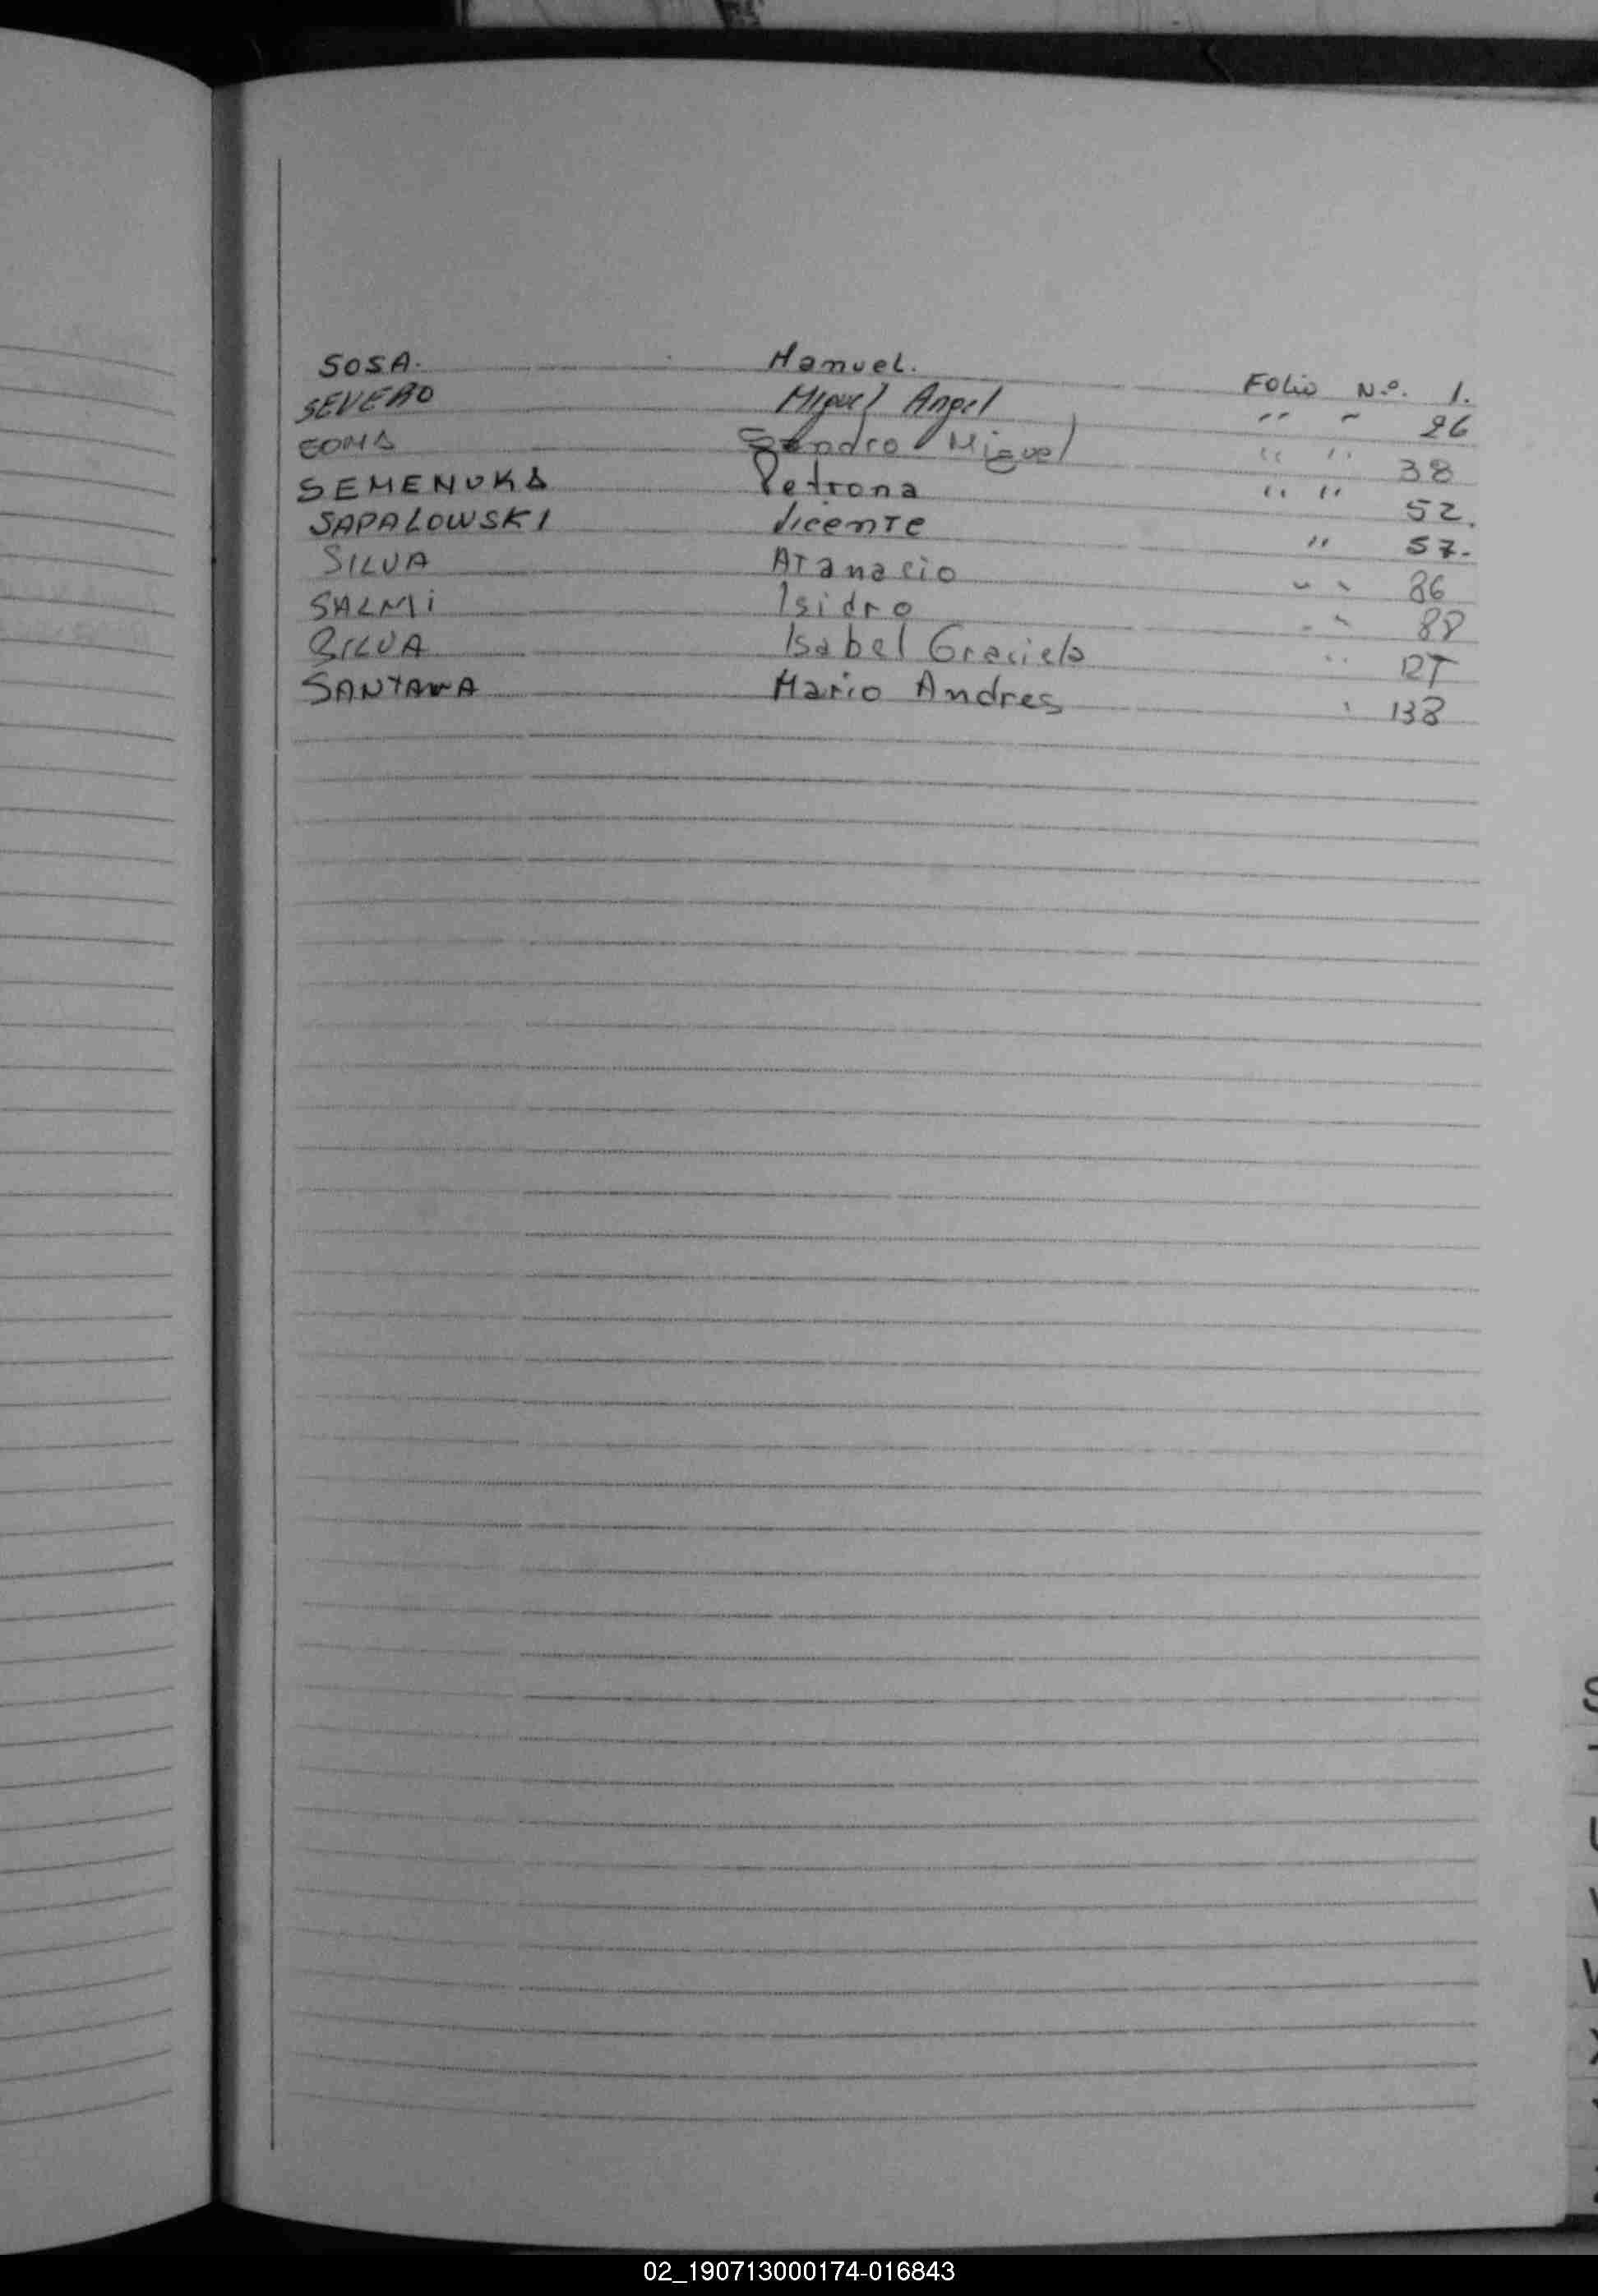 SOSA. Manuel. Folio N.º. 1.
SEVERO Miguel Angel " " 26
Sandro Miguel " " 38
SEMENUKA Petrona " " 52.
SAPALOWSKI Vicente " 57.
SILVA Atanacio " " 86
SALMI Isidro " " 88
SILVA Isabel Graciela "
SANTANA Mario Andres " 138
S
T
U
V
W
X
02_190713000174-016843